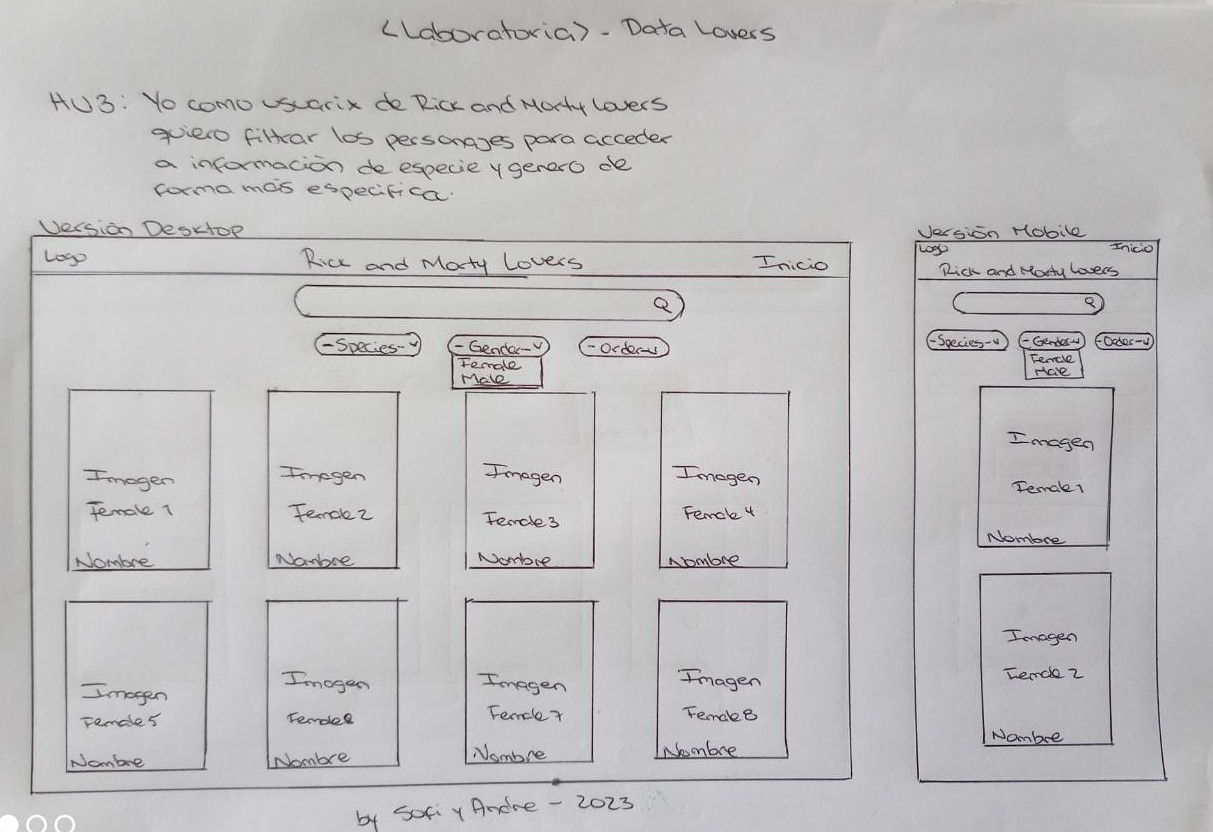 <Laboratoria> - Data Lovers
HU3: Yo como usuarix de Rick and Morty Lovers
quiero filtrar los personajes para acceder
a información de especie y genero de
forma más especifica.
Versión Desktop
Logo Rick and Morty Lovers Inicio
-Species-
-Gender-
-Order-
Female
Male
Imagen
Female 1
Nombre
Imagen
Female 2
Nombre
Imagen
Female 3
Nombre
Imagen
Female 4
Nombre
Imagen
Female 5
Nombre
Imagen
Female 6
Nombre
Imagen
Female 7
Nombre
Imagen
Female 8
Nombre
Versión Mobile
Logo Inicio
Rick and Morty Lovers
-Species-
-Gender-
-Order-
Female
Male
Imagen
Female 1
Nombre
Imagen
Female 2
Nombre
by Sofi y Andre - 2023